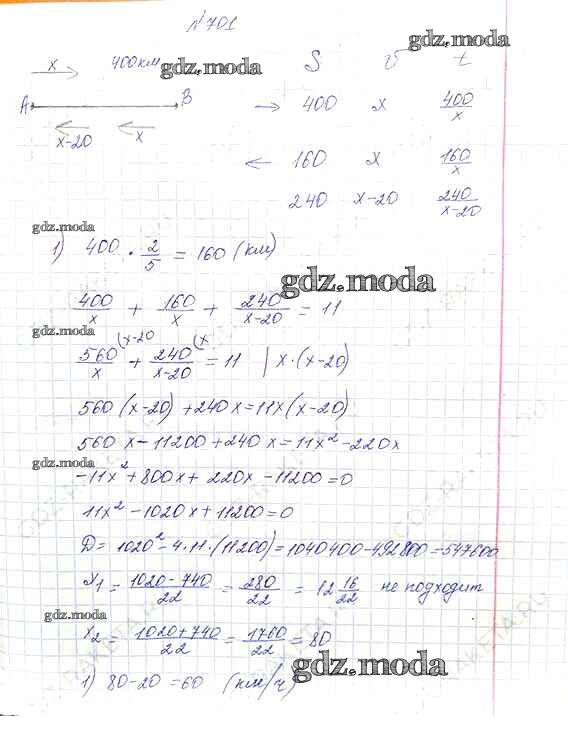 №701
gdz.moda
x 400км
gdz.moda
S v t
A B
→ 400 x 400/x
x-20 x
← 160 x 160/x
240 x-20 240/x-20
gdz.moda
1) 400 · 2/5 = 160 (км)
gdz.moda
400/x + 160/x + 240/x-20 = 11
gdz.moda
560/x (x-20 + 240/x-20 (x = 11 | x·(x-20)
560(x-20)+240x=11x(x-20)
560x-11200+240x=11x²-220x
gdz.moda
-11x²+800x+220x-11200=0
11x²-1020x+11200=0
D=1020²-4·11·(11200)=1040400-492800=547600
x₁ = 1020-740/22 = 280/22 = 12 16/22 не подходит
gdz.moda
x₂ = 1020+740/22 = 1760/22 = 80
gdz.moda
1) 80-20=60 (км/ч)
gdz.moda